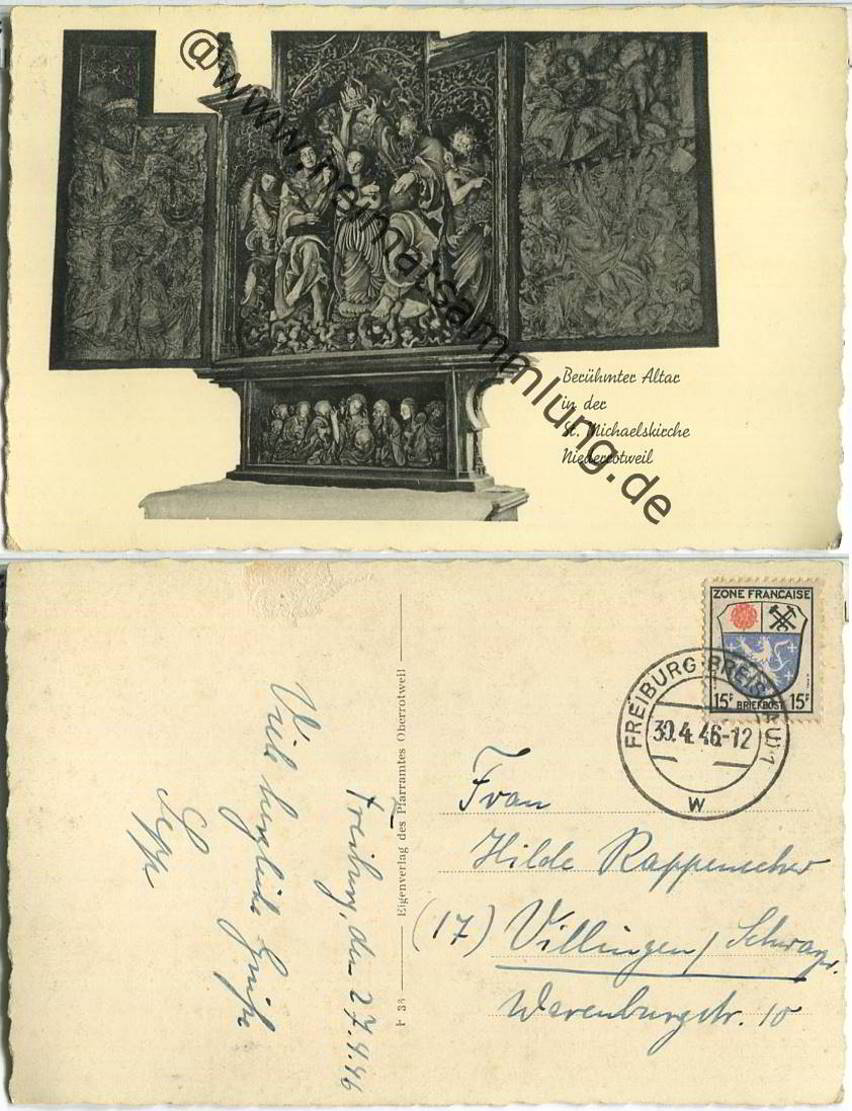 @www.heimatsammlung.de
Berühmter Altar
in der
St. Michaelskirche
Niederrotweil
ZONE FRANÇAISE
15F BRIEFPOST 15F
FREIBURG BREISGAU 1
30.4.46-12
W
Eigenverlag des Pfarramtes Oberrotweil
Freiburg, den 27.4.46
Viele herzliche Grüße
Sepp
Frau
Hilde Rappenecker
(17) Villingen/Schwarzw.
Warenburgstr. 10